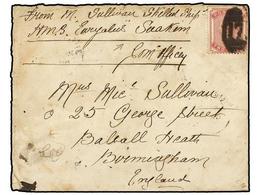 From M. Sullivan Skilled Shipt.
H.M.S. Euryalus Suakim
Com. Officer
Mrs Micl Sullivan
25 George Street
Balsall Heath
Birmingham
England